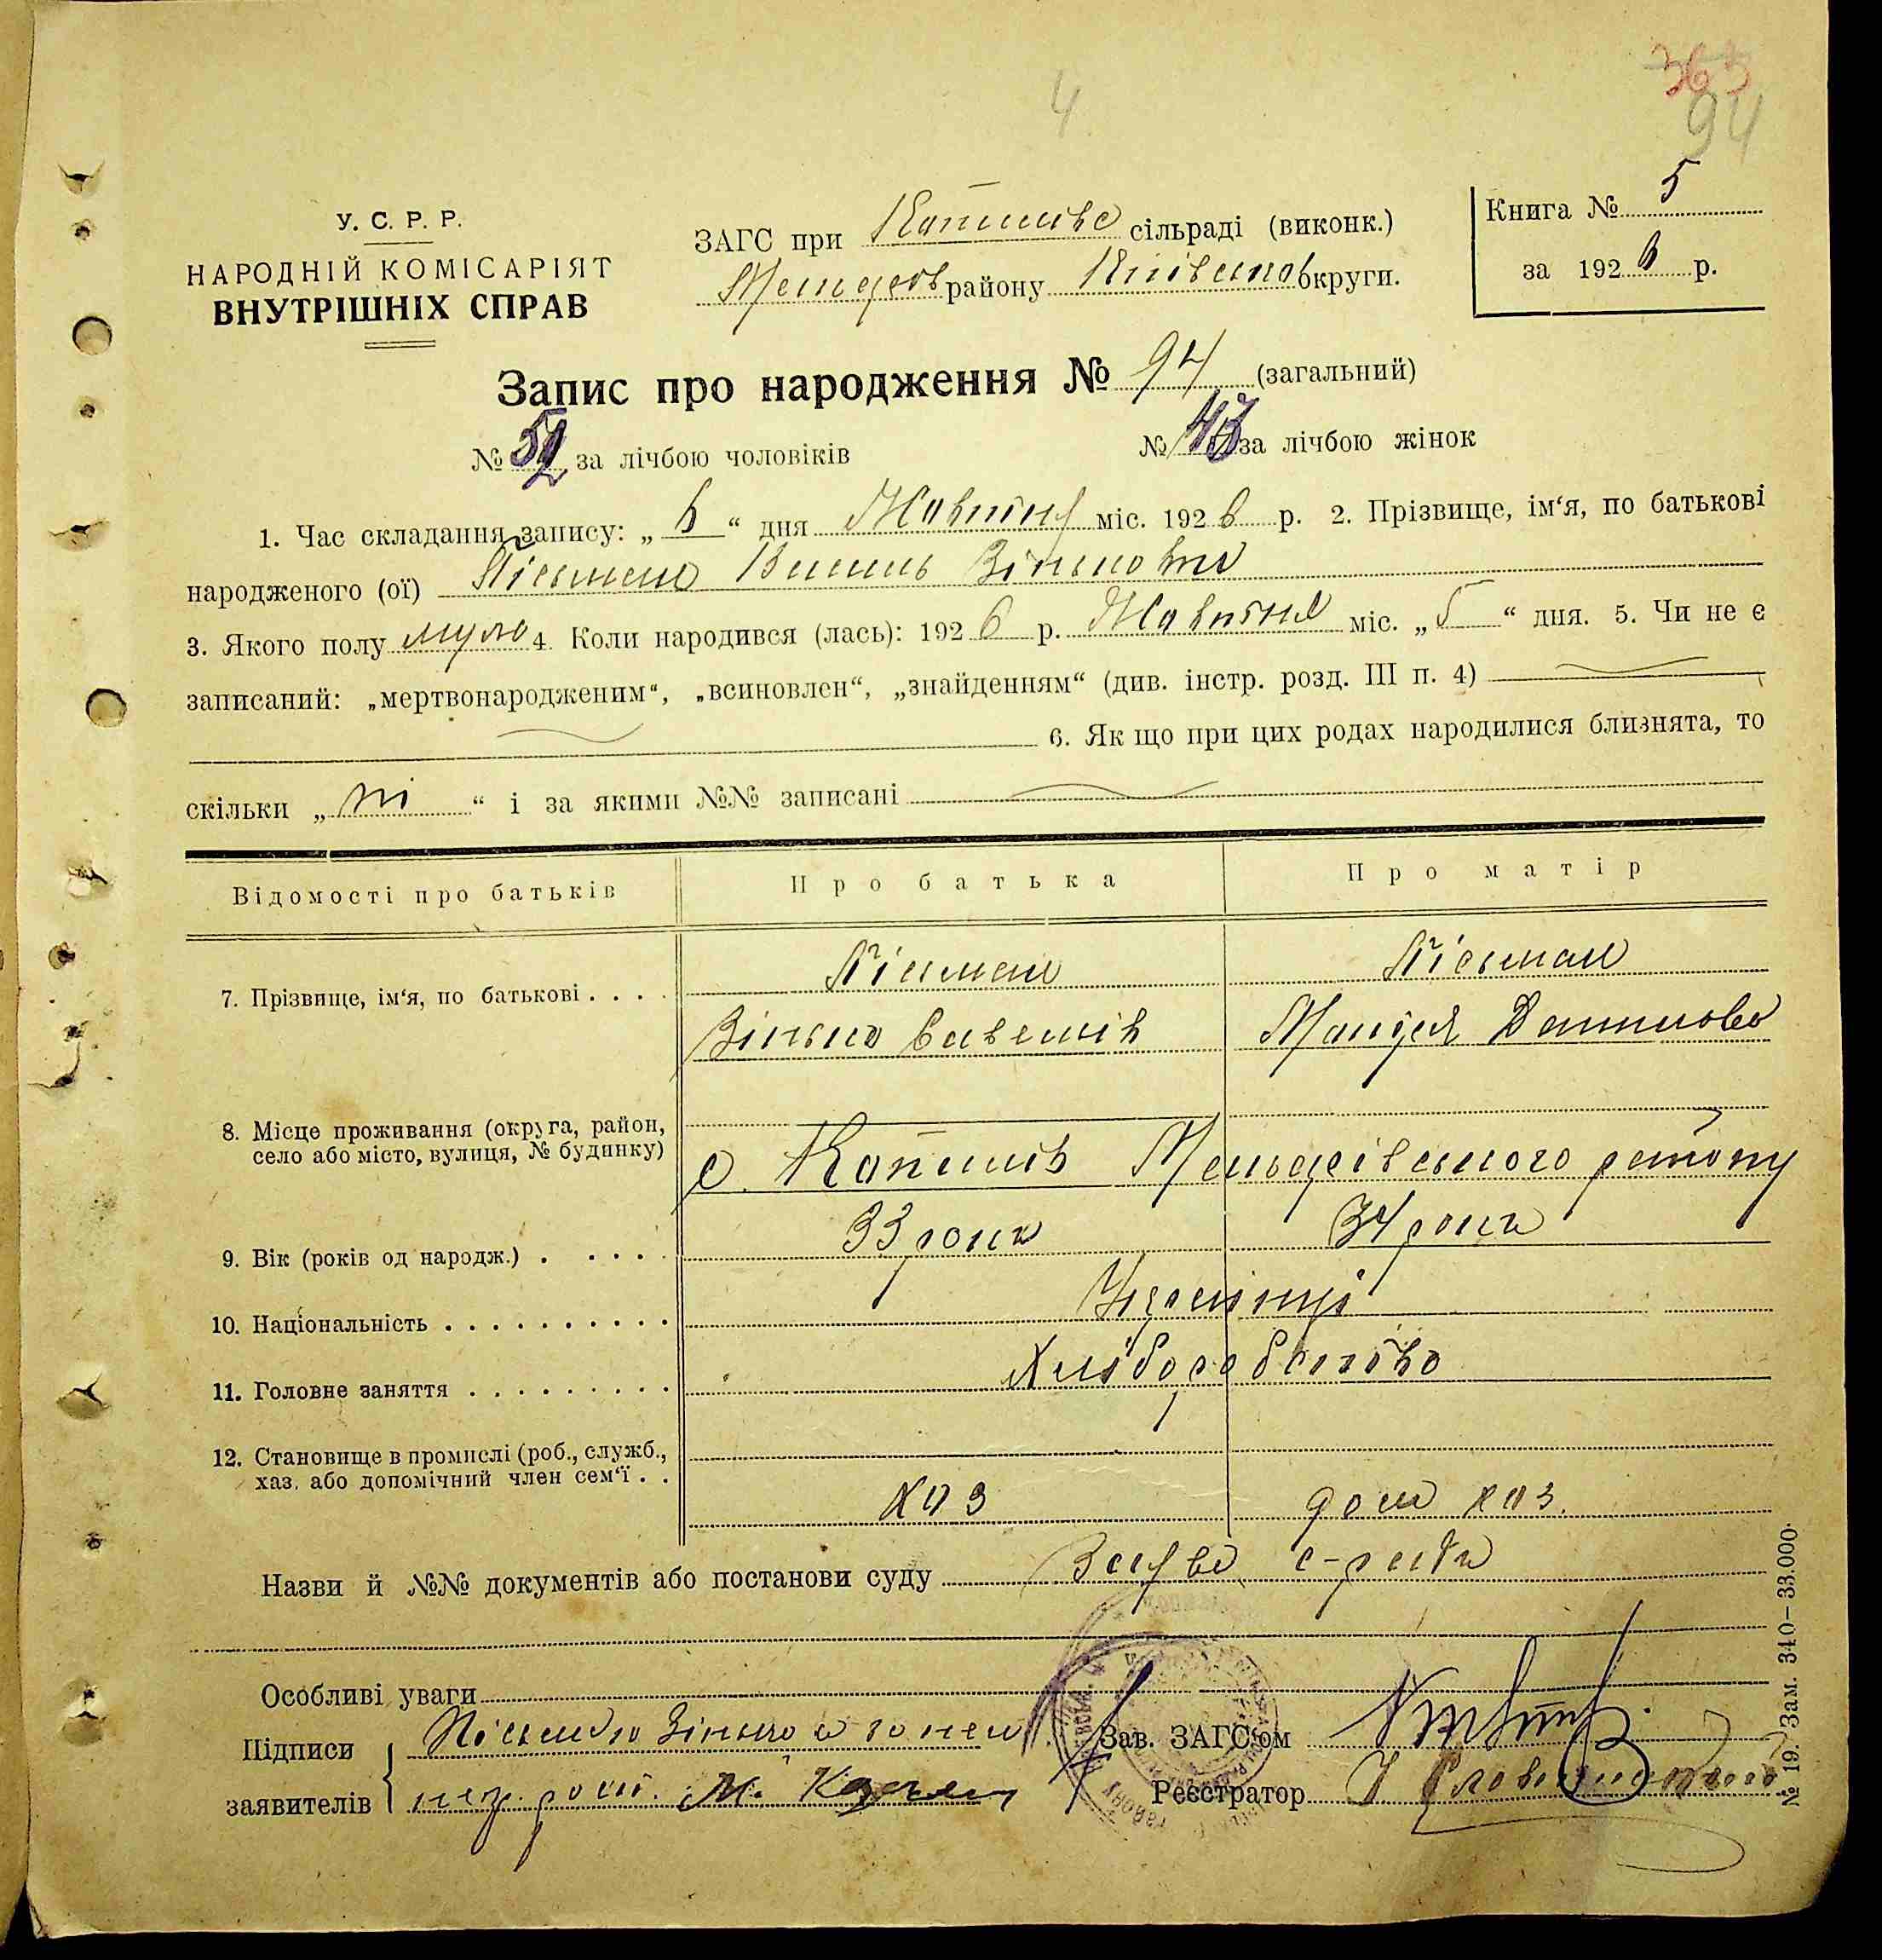 365
4
94
У. С. Р. Р.
НАРОДНІЙ КОМІСАРІЯТ
ВНУТРІШНІХ СПРАВ
ЗАГС при Копилівс сільраді (виконк.)
району Київсько округи.
Книга № 5
за 1926 р.
Запис про народження № 94 (загальний)
№ 52 за лічбою чоловіків
№ за лічбою жінок
1. Час складання запису: „ 6 “ дня Жовтня міс. 1926 р. 2. Прізвище, ім‘я, по батькові
народженого (ої) Письмен
3. Якого полу муж 4. Коли народився (лась): 1926 р. Жовтня міс. „ 5 “ дня. 5. Чи не є
записаний: „мертвонародженим“, „всиновлен“, „знайденням“ (див. інстр. розд. III п. 4)
6. Як що при цих родах народилися близнята, то
скільки „ ні “ і за якими №№ записані
Відомості про батьків
Про батька
Про матір
7. Прізвище, ім‘я, по батькові . . . .
Письмен
Письмен
Зінько Савелів
Данилова
8. Місце проживання (округа, район,
село або місто, вулиця, № будинку)
с. Копилів району
9. Вік (років од народж.) . . . . .
33 роки
34 роки
10. Національність . . . . . . . . . .
Українці
11. Головне заняття . . . . . . . . .
Хліборобство
12. Становище в промислі (роб., служб.,
хаз. або допомічний член сем‘ї . .
хаз
дом хаз.
Назви й №№ документів або постанови суду Заява
Особливі уваги
Підписи
заявителів
Зінько а за нем
М.
Зав. ЗАГС‘ом
Реєстратор
№ 19. Зам. 340—33.000.